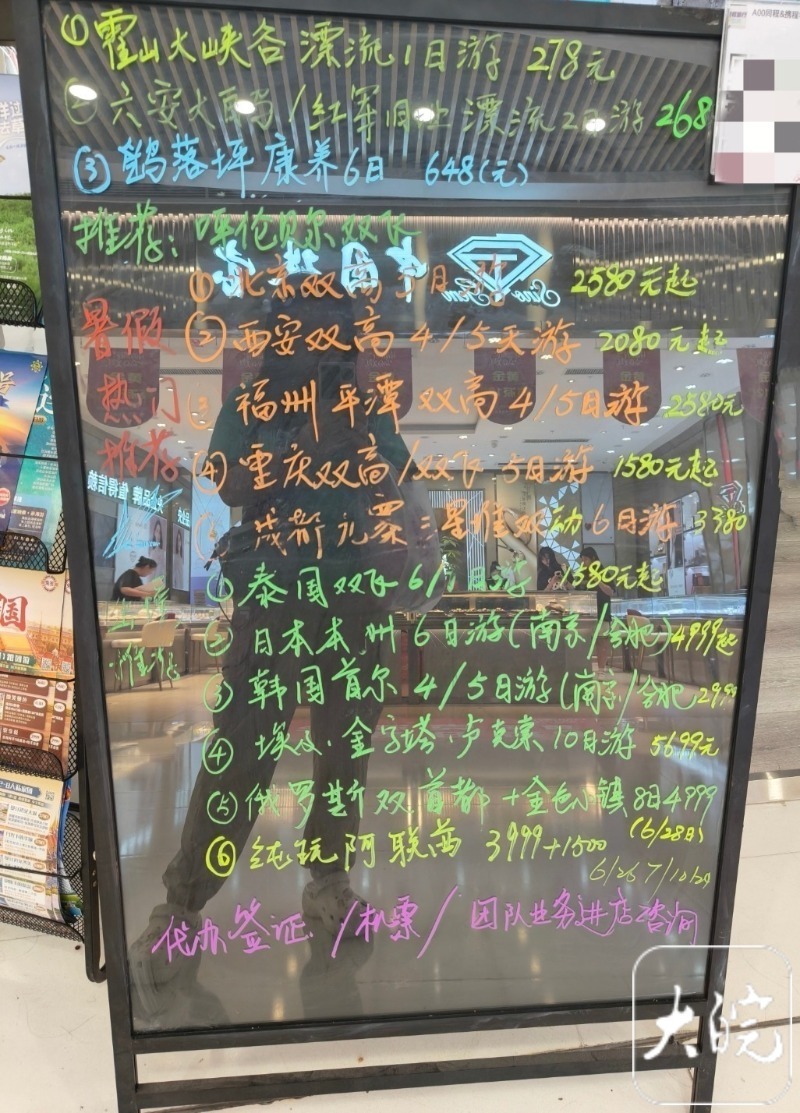 ① 霍山大峡谷漂流1日游 278元
② 六安大 /红军 漂流2日游 268
③ 鹞落坪康养6日 648(元)
推荐：呼伦贝尔双飞
暑假热门推荐
① 北京双高5日游 2580元起
② 西安双高4/5天游 2080元起
③ 福州平潭双高4/5日游 2580元
④ 重庆双高/双飞5日游 1580元起
成都九寨 双动6日游 3380
推荐
① 泰国双飞6/ 日游 1580元起
② 日本本州6日游(南京/合肥)4999起
③ 韩国首尔4/5日游(南京/合肥 2999
④ 埃及·金字塔·卢克索10日游 5699元
⑤ 俄罗斯双首都+金色小镇8日4999
(6/28日)
⑥ 纯玩阿联酋 3999+1500
6/26 7/10/24
代办签证/机票/团队业务进店咨询
大皖